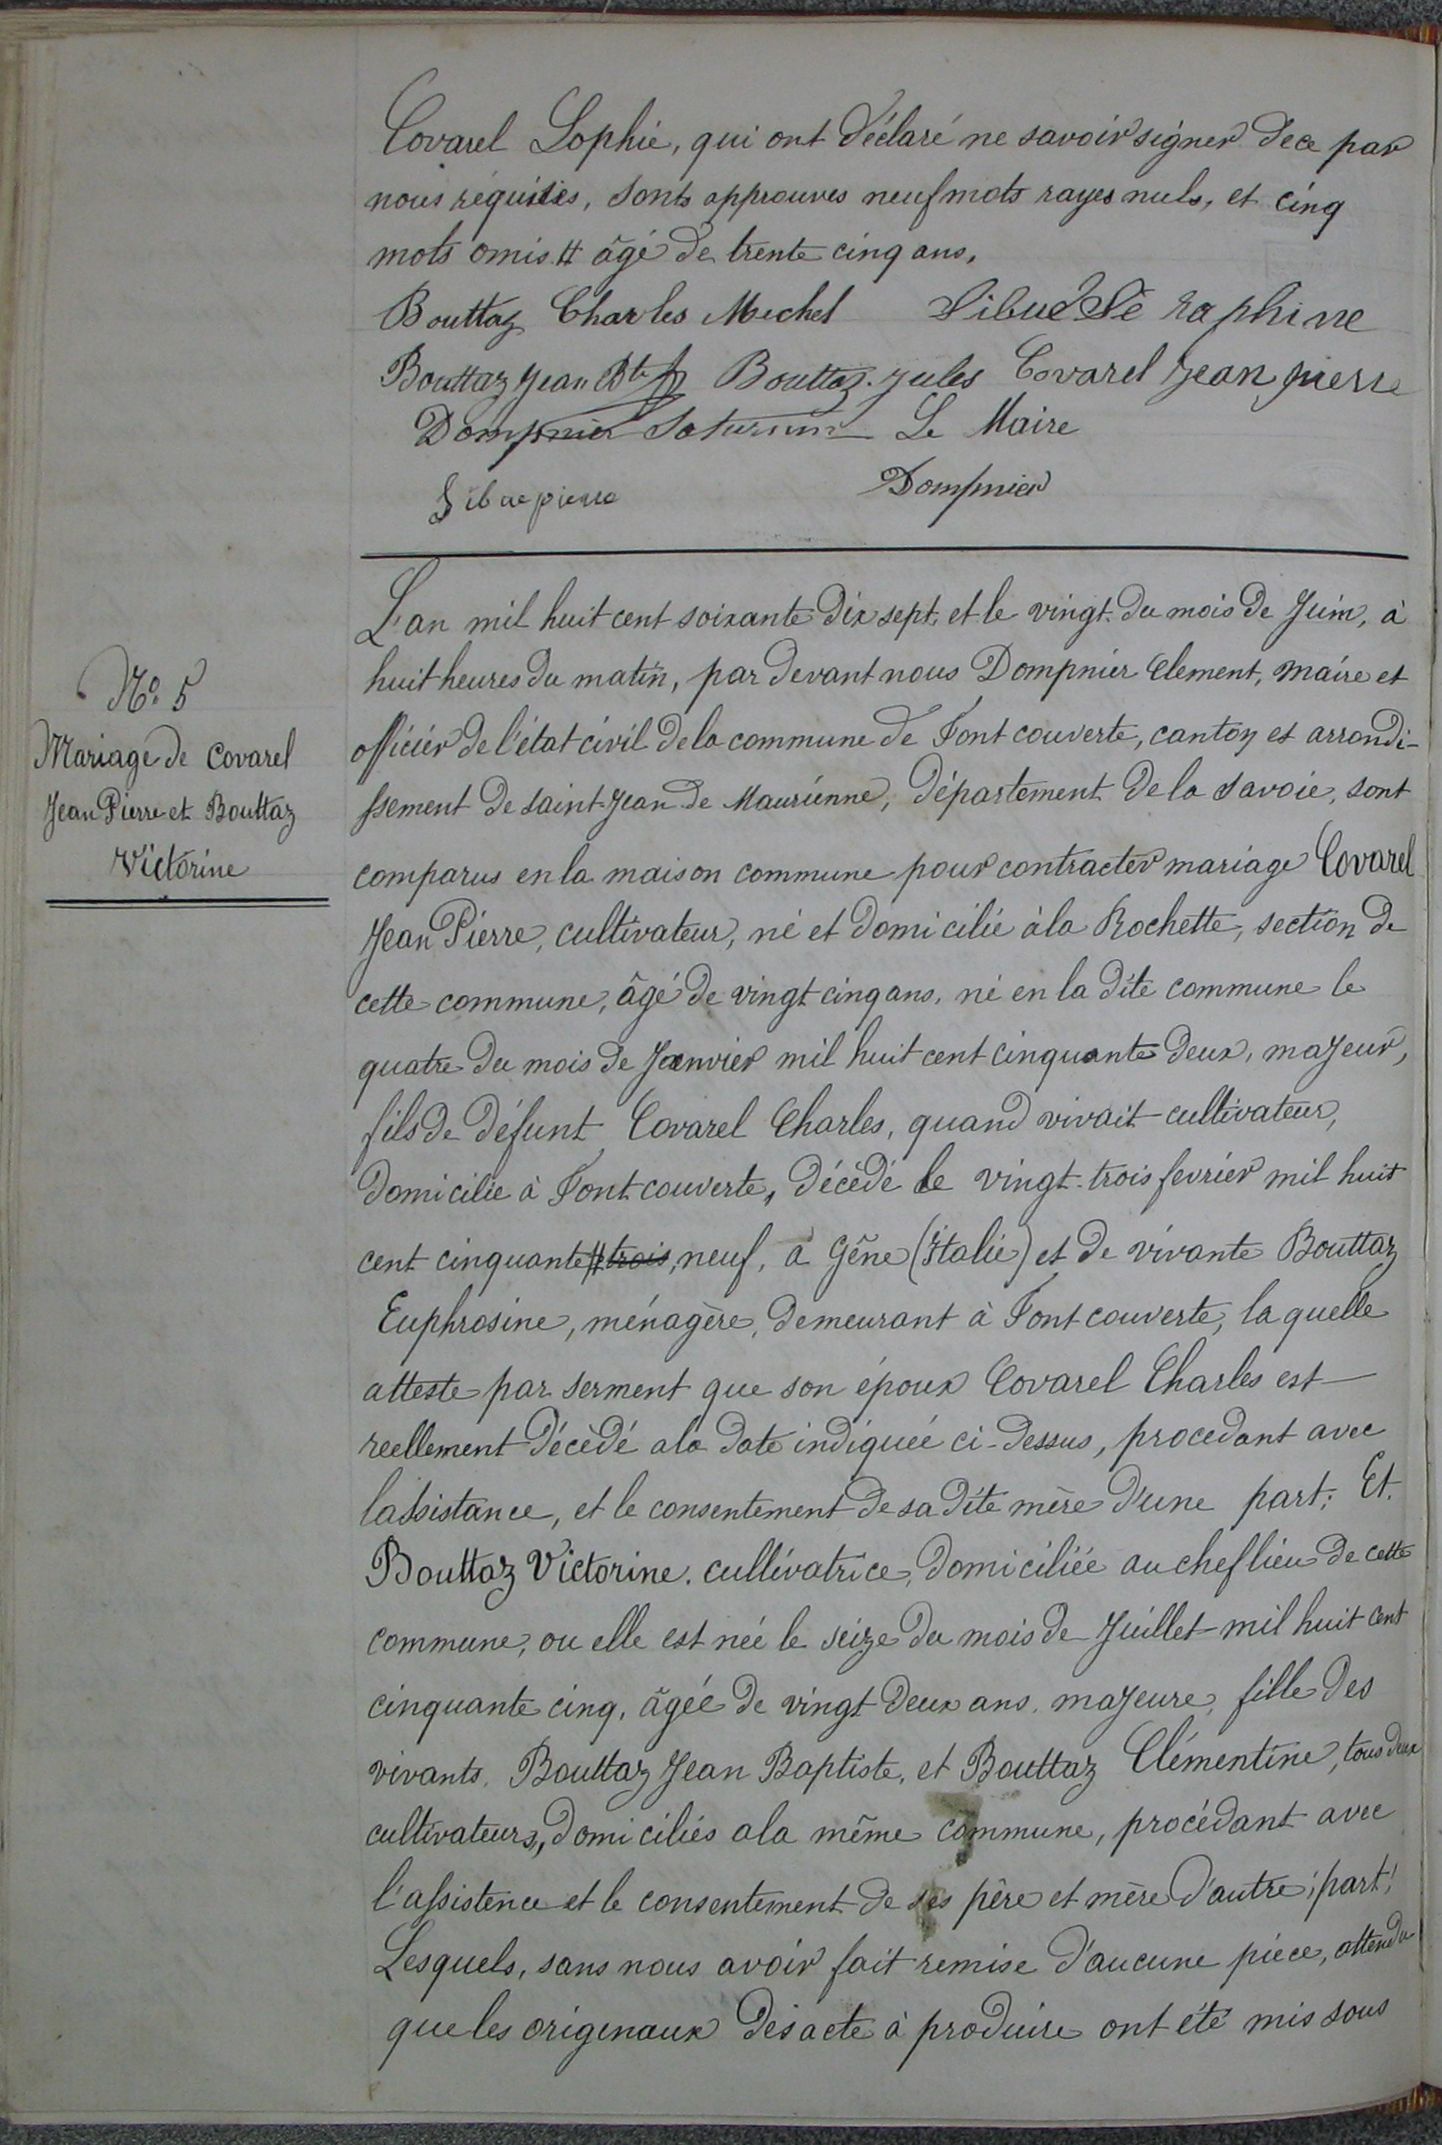 Covarel Sophie, qui ont déclaré ne savoir signer de ce par
nous réquises, sont approuves neuf mots rayes nuls, et cinq
mots omis # âgé de trente cinq ans,
Bouttaz Charles Michel Sibué Sé raphine
Bouttaz Jean Bte Bouttaz Jules Covarel Jean pierre
Dompnier Saturnin Le Maire
Sibue pierre Dompnier
N° 5
Mariage de Covarel
Jean Pierre et Bouttaz
Victorine
L'an mil huit cent soixante dix sept, et le vingt du mois de Juin, à
huit heures du matin, par devant nous Dompnier Clement, maire et
officier de l'état civil de la commune de Font couverte, canton et arrondi-
ssement de Saint Jean de Maurienne, département de la Savoie, sont
comparus en la maison commune pour contracter mariage Covarel
Jean Pierre, cultivateur, né et domicilié à la Rochette, section de
cette commune, âgé de vingt cinq ans, né en la dite commune le
quatre du mois de Janvier mil huit cent cinquante deux, majeur,
fils de défunt Covarel Charles, quand vivait cultivateur,
domicilié à Font couverte, décédé le vingt-trois fevrier mil huit
cent cinquante # trois, neuf, a Gêne (Italie) et de vivante Bouttaz
Euphrosine, ménagère, demeurant à Font couverte, la quelle
atteste par serment que son époux Covarel Charles est
reellement décédé a la date indiquée ci-dessus, procedant avec
lassistance, et le consentement de sa dite mère d'une part; Et.
Bouttaz Victorine. cultivatrice, domiciliée au chef lieu de cette
commune, ou elle est née le seize du mois de Juillet mil huit cent
cinquante cinq, âgée de vingt deux ans, majeure, fille des
vivants, Bouttaz Jean Baptiste, et Bouttaz Clémentine, tous deux
cultivateurs, domiciliés a la même commune, procédant avec
l'assistence et le consentement de ses père et mère d'autre part!
Lesquels, sans nous avoir fait remise d'aucune pièce, attendu
que les origenaux des acte à produire ont été mis sous